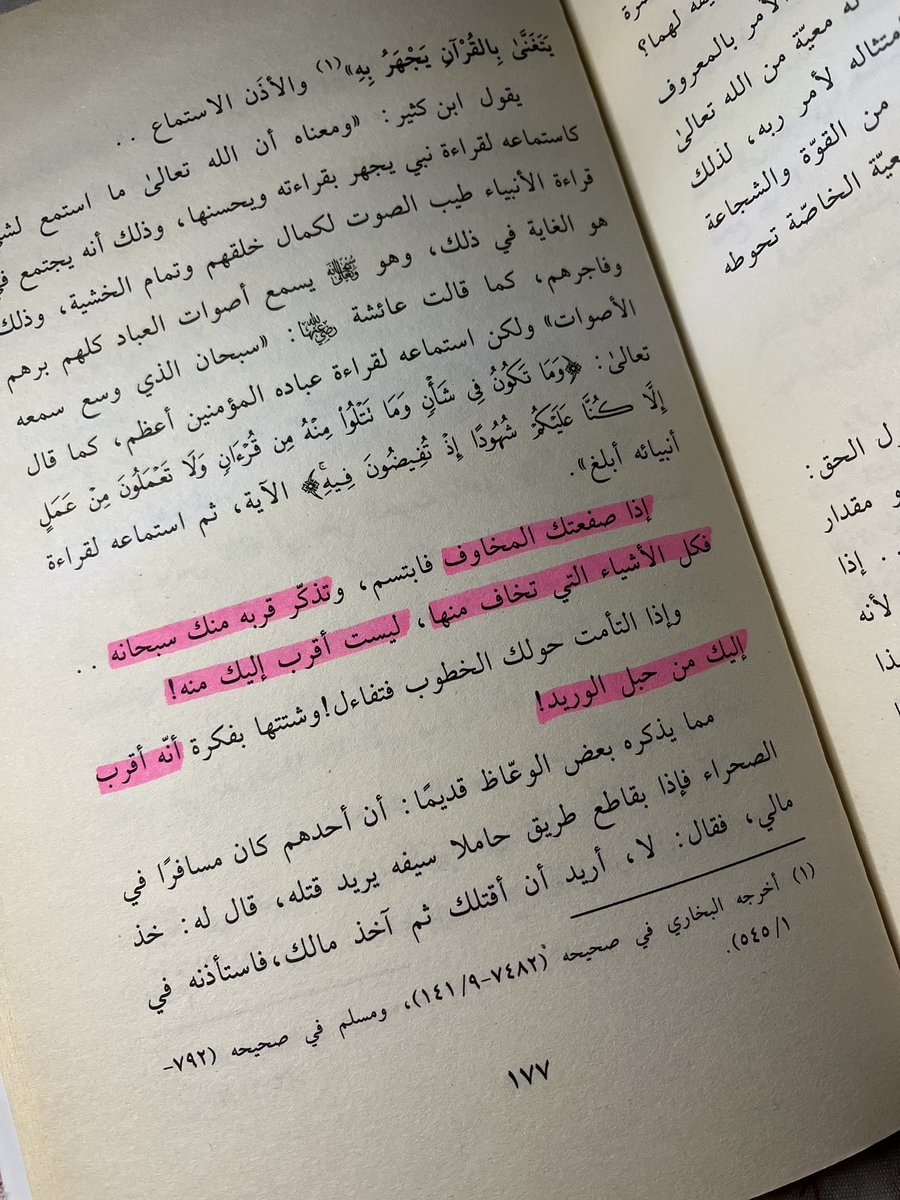 يَتَغَنَّىٰ بِالقُرْآنِ يَجْهَرُ بِهِ»(١) والأذَن الاستماع ..
يقول ابن كثير: «ومعناه أن الله تعالىٰ ما استمع
كاستماعه لقراءة نبي يجهر بقراءته ويحسنها، وذلك أنه يجتمع في
قراءة الأنبياء طيب الصوت لكمال خلقهم وتمام الخشية، وذلك
هو الغاية في ذلك، وهو سبحانه وتعالى يسمع أصوات العباد كلهم برهم
وفاجرهم، كما قالت عائشة رضي الله عنها: «سبحان الذي وسع سمعه
الأصوات» ولكن استماعه لقراءة عباده المؤمنين أعظم، كما قال
تعالىٰ: ﴿وَمَا تَكُونُ فِي شَأْنٍ وَمَا تَتْلُواْ مِنْهُ مِن قُرْءَانٍ وَلَا تَعْمَلُونَ مِنْ عَمَلٍ
إِلَّا كُنَّا عَلَيْكُمْ شُهُودًا إِذْ تُفِيضُونَ فِيهِۚ﴾ الآية، ثم استماعه لقراءة
أنبيائه أبلغ».
إذا صفعتك المخاوف فابتسم، وتذكّر قربه منك سبحانه ..
فكل الأشياء التي تخاف منها، ليست أقرب إليك منه!
وإذا التأمت حولك الخطوب فتفاءل! وشتتها بفكرة أنّه أقرب
إليك من حبل الوريد!
مما يذكره بعض الوعّاظ قديمًا: أن أحدهم كان مسافرًا في
الصحراء فإذا بقاطع طريق حاملا سيفه يريد قتله، قال له: خذ
مالي، فقال: لا، أريد أن أقتلك ثم آخذ مالك، فاستأذنه في
(١) أخرجه البخاري في صحيحه (٧٤٨٢-٩/١٤١)، ومسلم في صحيحه (٧٩٢-
١/٥٤٥).
١٧٧
لهما؟
الأمر بالمعروف
معيّة من الله تعالىٰ
لأمر ربه، لذلك
من القوّة والشجاعة
الخاصّة تحوطه
الحق:
مقدار
.. إذا
لأنه